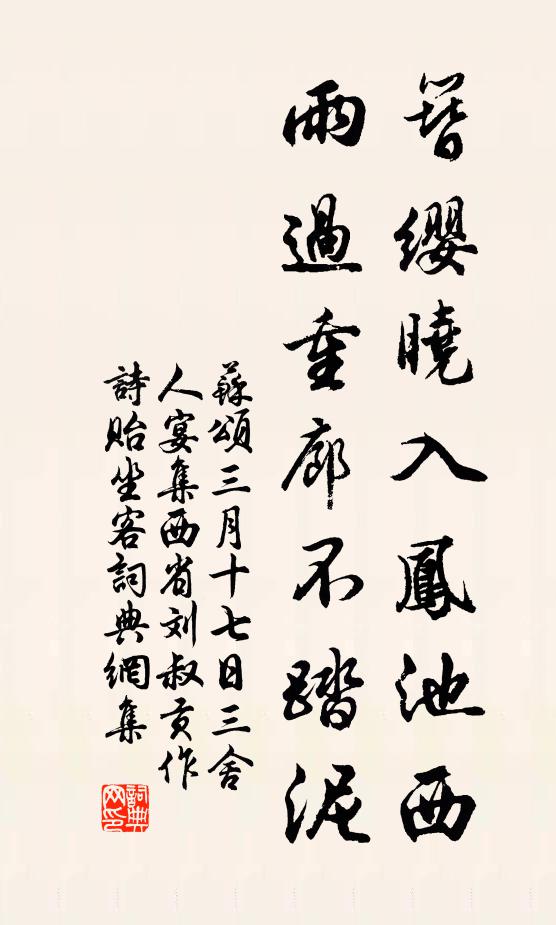 簪纓曉入鳳池西
雨過重廊不踏泥
蘇頌三月十七日三舍
人宴集西省刘叔贡作
詩貽坐客詞典網集
詞典网印